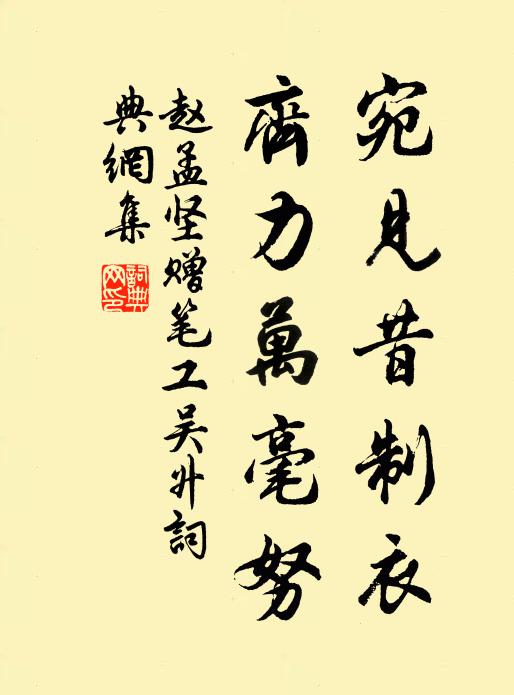 宛見昔制衣
齊力萬毫努
赵孟坚赠笔工吴升詞
典網集
詞典網印